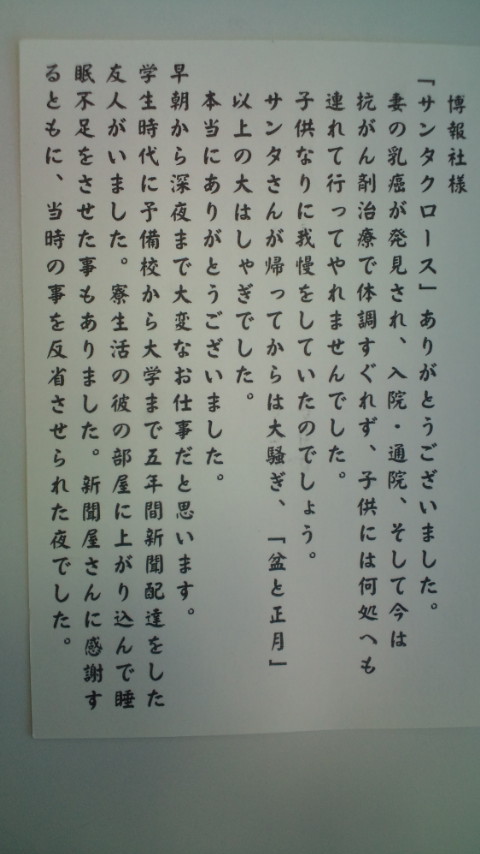 博報社様
「サンタクロース」ありがとうございました。
妻の乳癌が発見され、入院・通院、そして今は
抗がん剤治療で体調すぐれず、子供には何処へも
連れて行ってやれませんでした。
子供なりに我慢をしていたのでしょう。
サンタさんが帰ってからは大騒ぎ、「盆と正月」
以上の大はしゃぎでした。
本当にありがとうございました。
早朝から深夜まで大変なお仕事だと思います。
学生時代に予備校から大学まで五年間新聞配達をした
友人がいました。寮生活の彼の部屋に上がり込んで睡
眠不足をさせた事もありました。新聞屋さんに感謝す
るともに、当時の事を反省させられた夜でした。